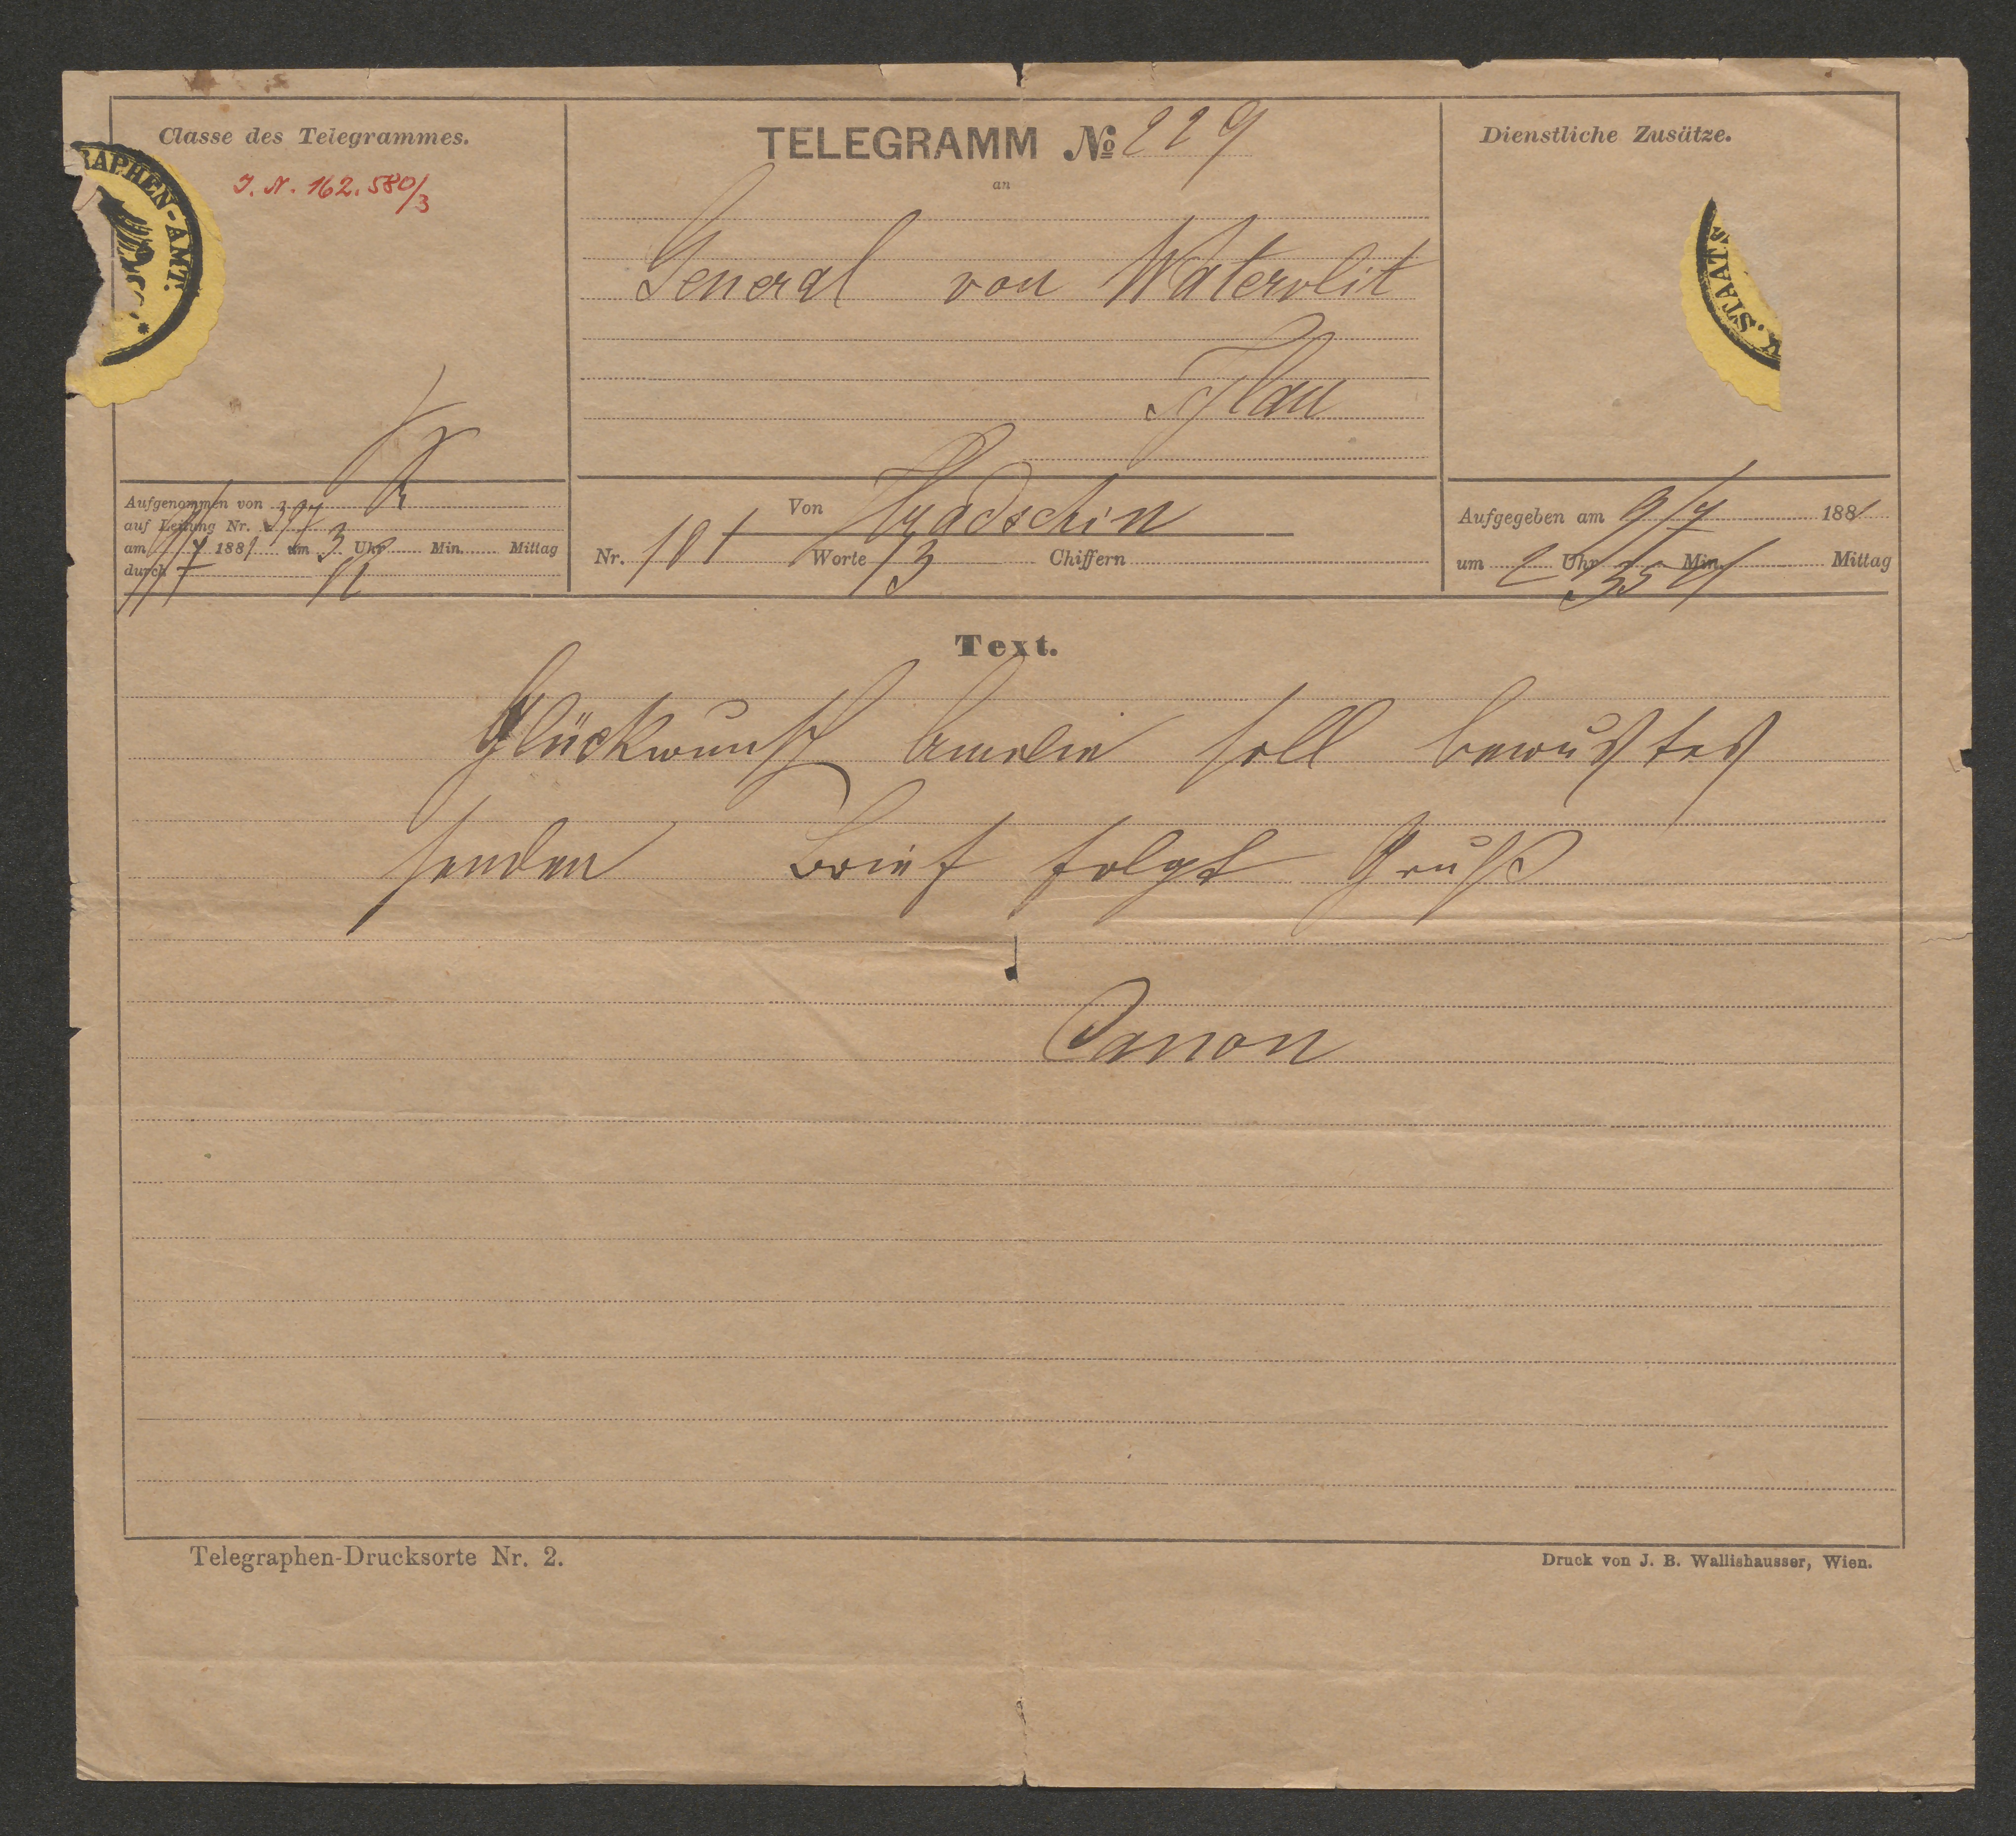 Classe des Telegrammes.
J. N. 162.580/3
RAPHEN-AMT. *
TELEGRAMM № 229
an
General von Watervlit
Iglau
Dienstliche Zusätze.
K. STAATS
Aufgenommen von 397
auf Leitung Nr.
am 9/7 1881 um 3 Uhr Min. Mittag
durch
Von Hradschin
Nr. 101 Worte 13 Chiffern
Aufgegeben am 9/7 1881
um 2 Uhr 35 Min. Mittag
Text.
Glückwunsch Amelie soll bewußtes
senden Brief folgt Gruß
Canon
Telegraphen-Drucksorte Nr. 2.
Druck von J. B. Wallishausser, Wien.